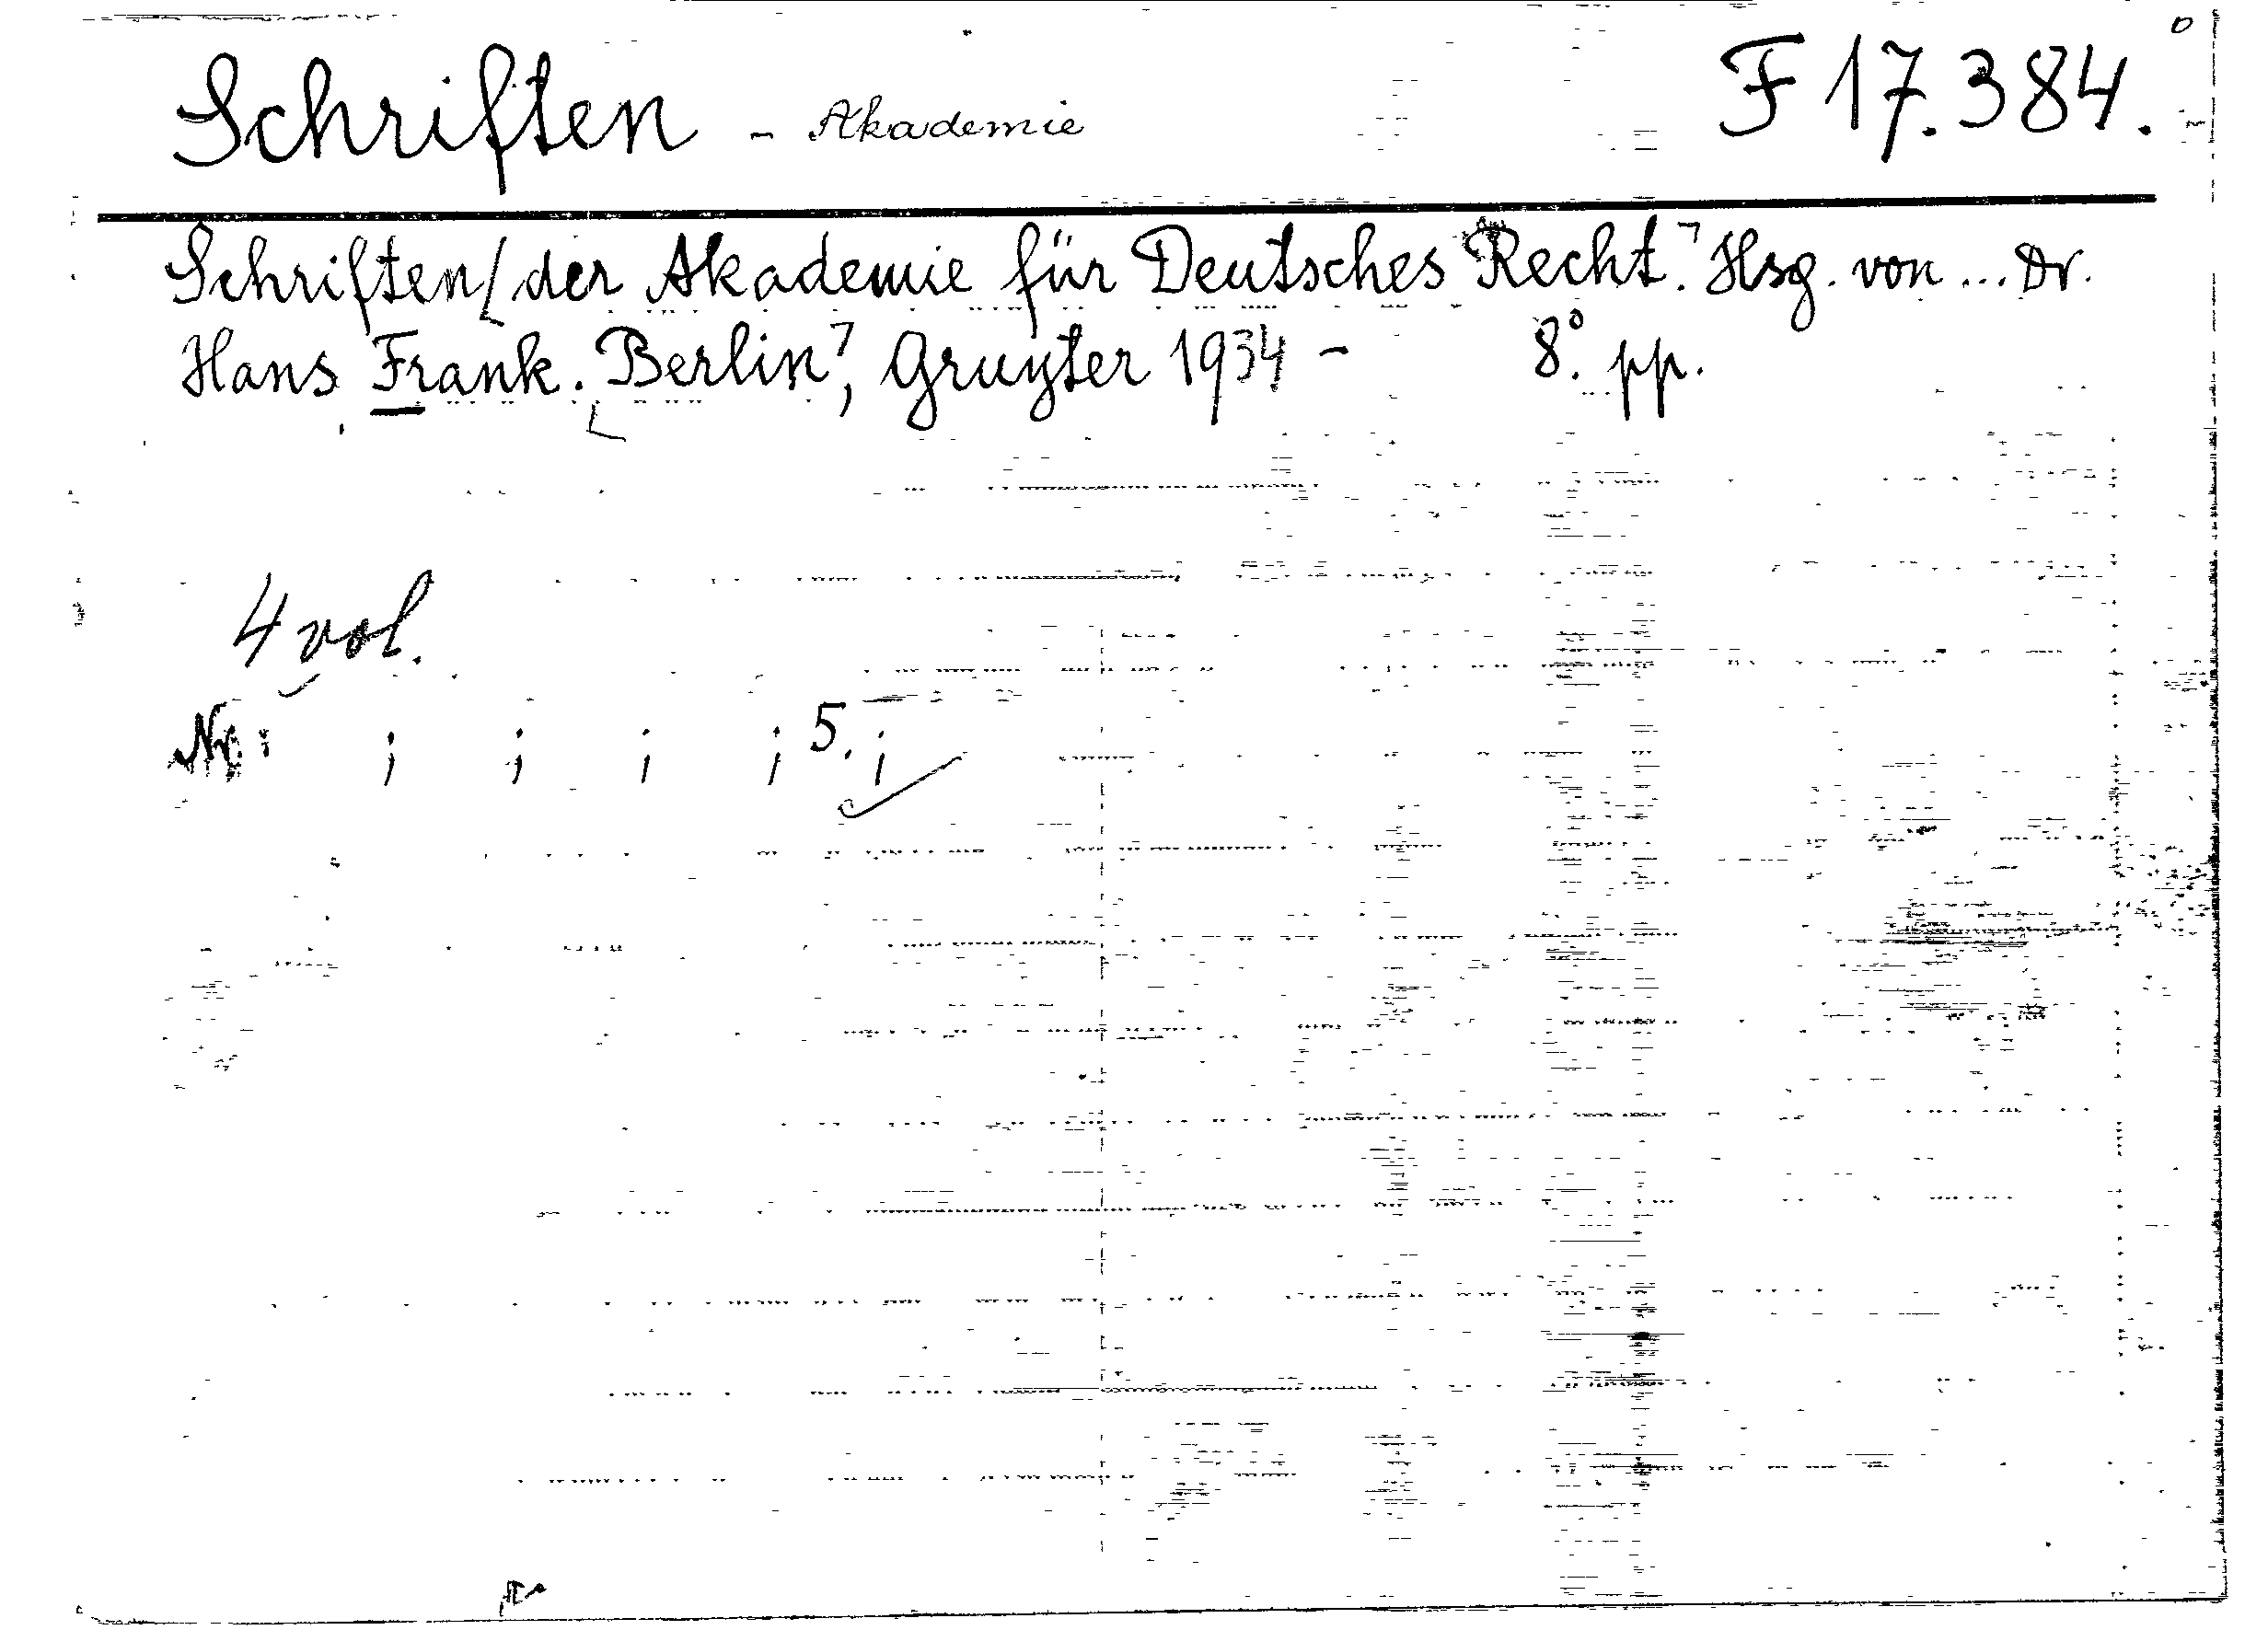 Schriften - Akademie F 17.384.
Schriften/der Akademie für Deutsches Recht. Hsg. von ... Dr.
Hans Frank. Berlin, Gruyter 1934 - 8°. pp.
4 vol.
Nr: ; ; ; ; 5. ;